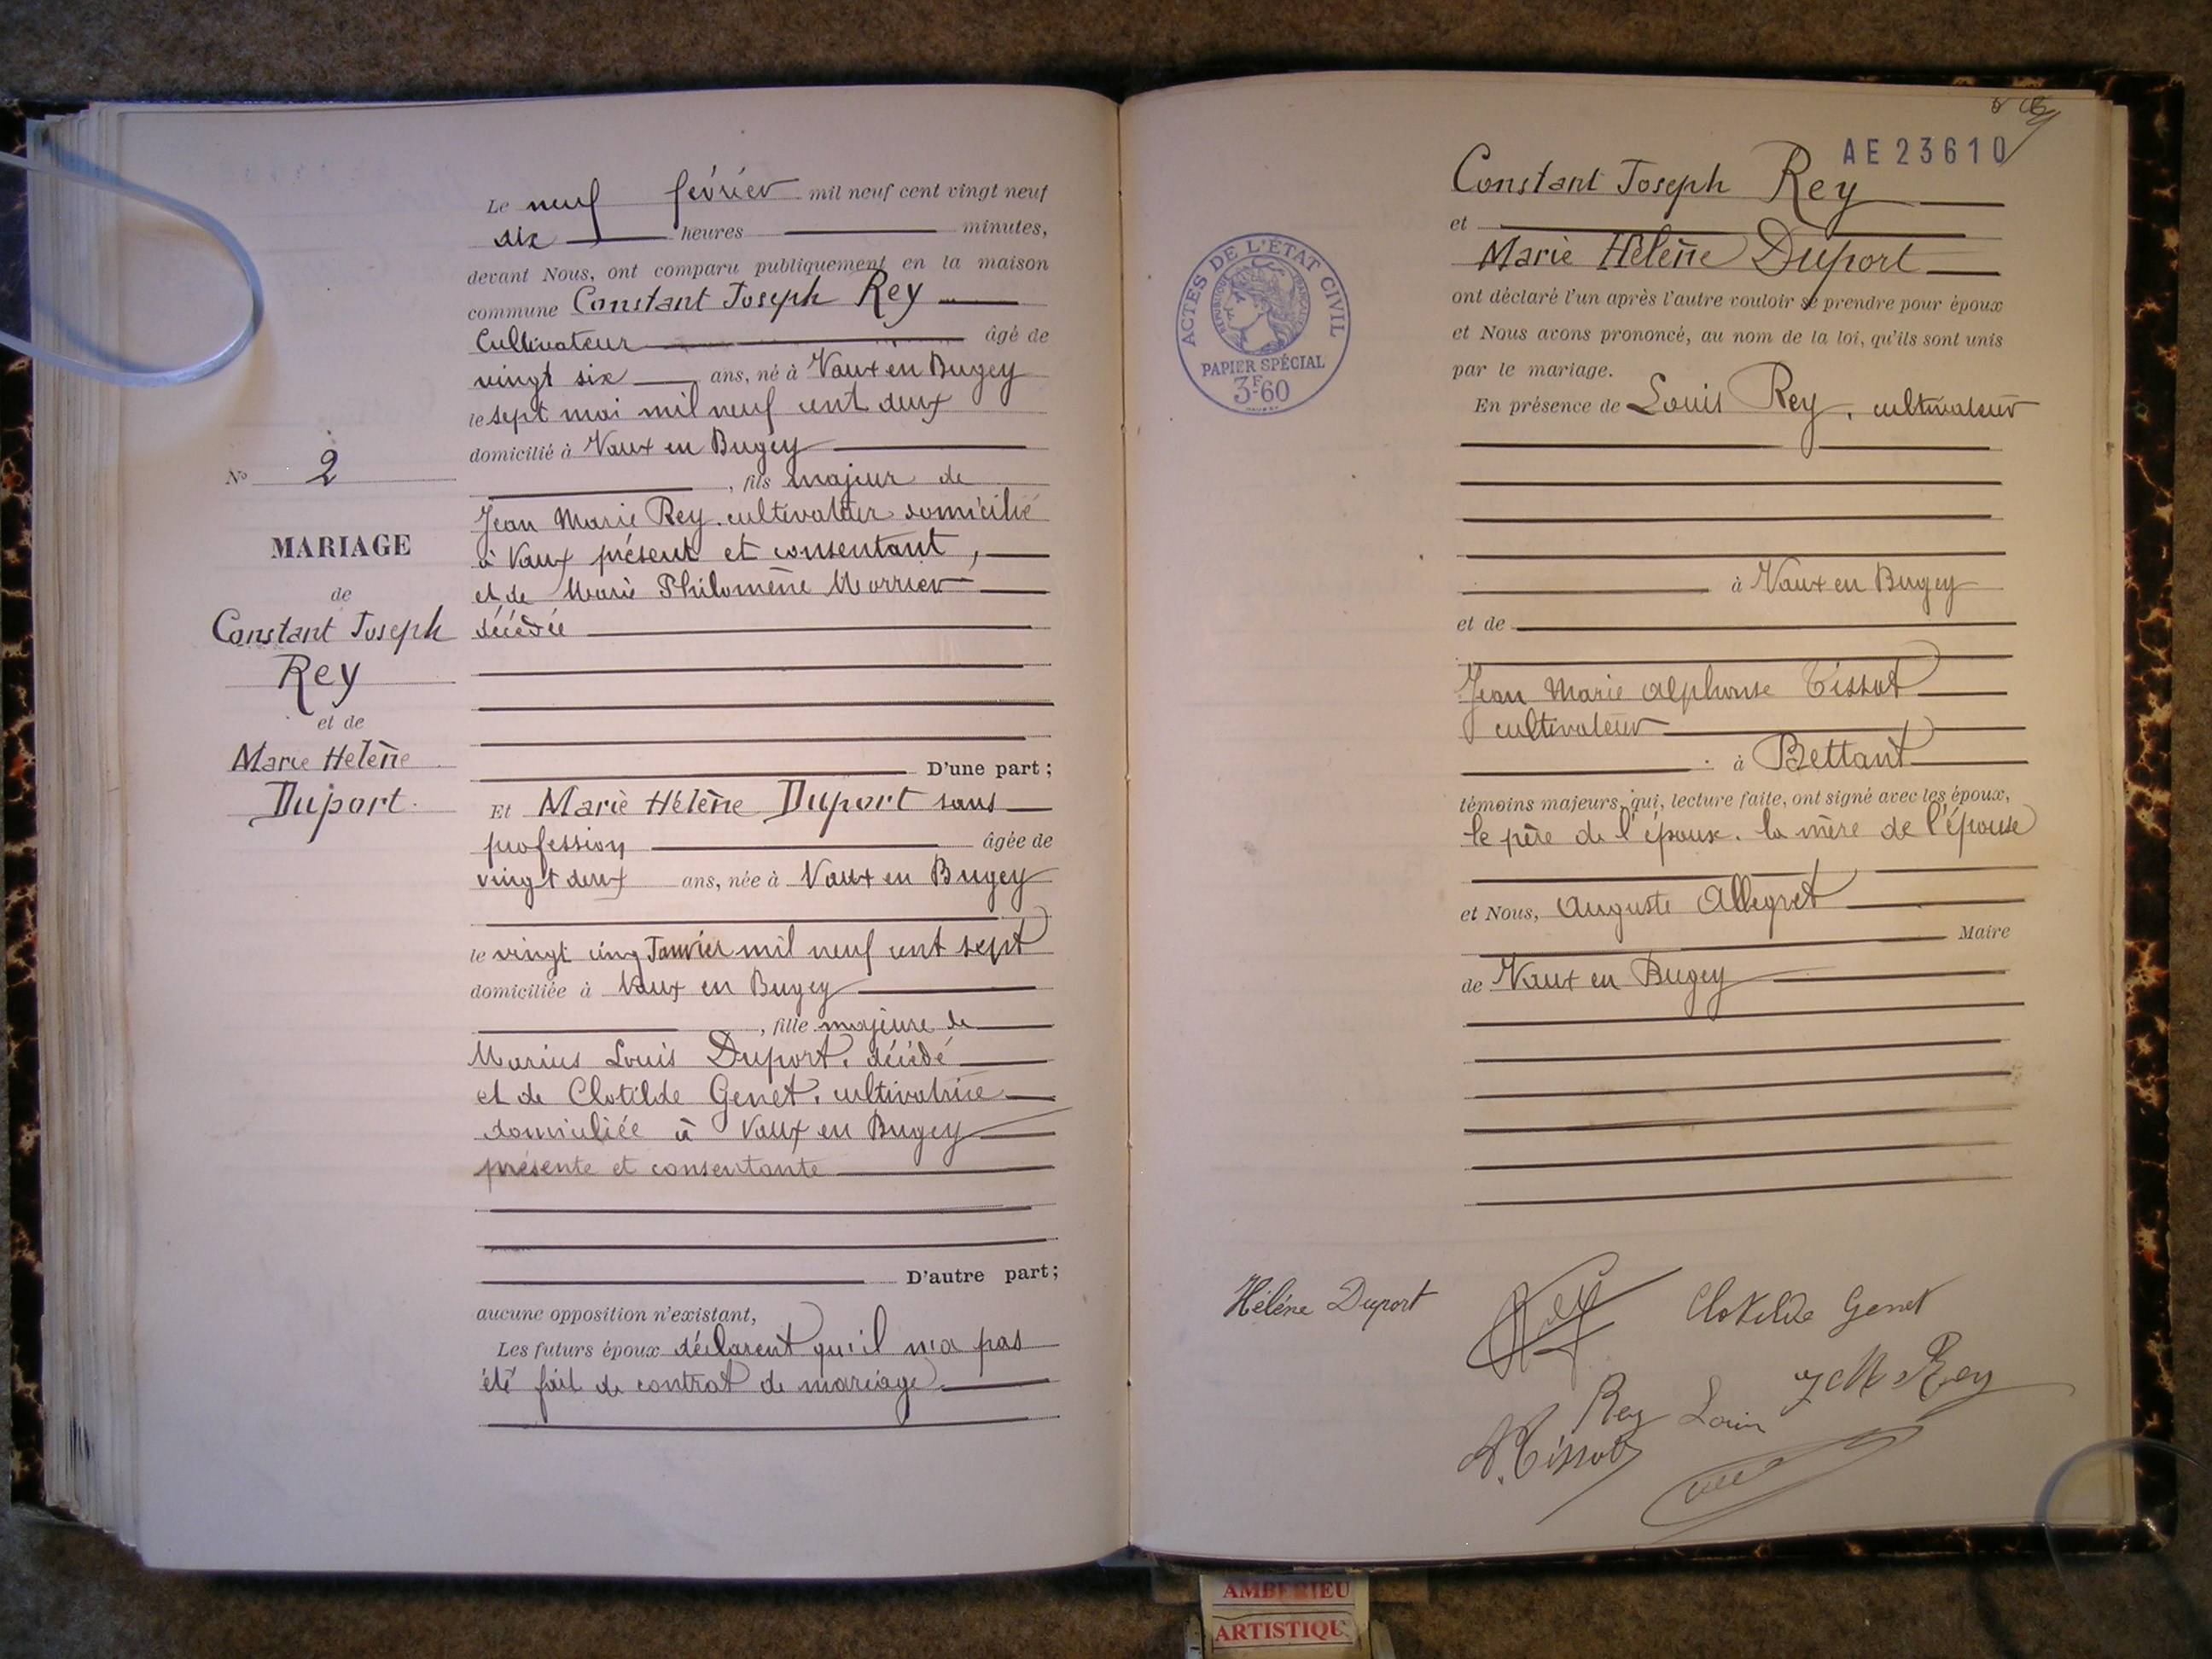 Le neuf février mil neuf cent vingt neuf
dix heures minutes,
devant Nous, ont comparu publiquement en la maison
commune Constant Joseph Rey
Cultivateur âgé de
vingt six ans, né à Vaux en Bugey
le sept mai mil neuf cent deux
domicilié à Vaux en Bugey
, fils majeur de
Jean Marie Rey. cultivateur domicilié
à Vaux présent et consentant,
et de Marie Philomène Morrier
décédée
D'une part;
Et Marie Hélène Duport sans
profession âgée de
vingt deux ans, née à Vaux en Bugey
le vingt cinq Janvier mil neuf cent sept
domiciliée à Vaux en Bugey
, fille majeure de
Marius Louis Duport, décédé
et de Clotilde Genet, cultivatrice
domiciliée à Vaux en Bugey
présente et consentante
D'autre part;
aucune opposition n'existant,
Les futurs époux déclarent qu'il n'a pas
été fait de contrat de mariage.
No 2
MARIAGE
de
Constant Joseph
Rey
et de
Marie Helène
Duport.
AE 23610
Constant Joseph Rey
et
Marie Hélène Duport
ont déclaré l'un après l'autre vouloir se prendre pour époux
et Nous avons prononcé, au nom de la loi, qu'ils sont unis
par le mariage.
En présence de Louis Rey, cultivateur
à Vaux en Bugey
et de
Jean Marie Alphonse Tissot
cultivateur
à Bettant
témoins majeurs, qui, lecture faite, ont signé avec les époux,
le père de l'époux. la mère de l'épouse
et Nous, Auguste Allegret
Maire
de Vaux en Bugey
ACTES DE L'ÉTAT CIVIL
RÉPUBLIQUE FRANÇAISE
PAPIER SPÉCIAL
3F.60
Hélène Duport
Rey
Clotilde Genet
J M Rey
Rey Louis
A. Tissot
AMBERIEU
ARTISTIQU